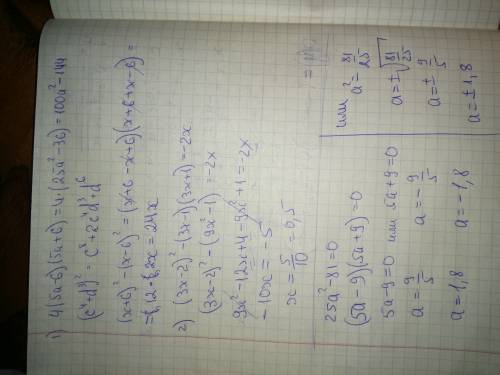 1) 4(5a-6)(5a+6)=4·(25a²-36)=100a²-144
(c⁴+d³)²=c⁸+2c⁴d³+d⁶
(x+6)²-(x-6)²=(x+6-x+6)(x+6+x-6)=
=12·2x=24x
2) (3x-2)²-(3x-1)(3x+1)=-2x
(3x-2)²-(9x²-1)=-2x
9x²-12x+4-9x²+1=-2x
-10x=-5
x=5/10=0,5
25a²-81=0
(5a-9)(5a+9)=0
5a-9=0 или 5a+9=0
a=9/5 a=-9/5
a=1,8 a=-1,8
или
a²=81/25
a=±√81/25
a=±9/5
a=±1,8